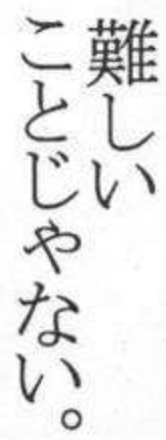 難しい
ことじゃない。